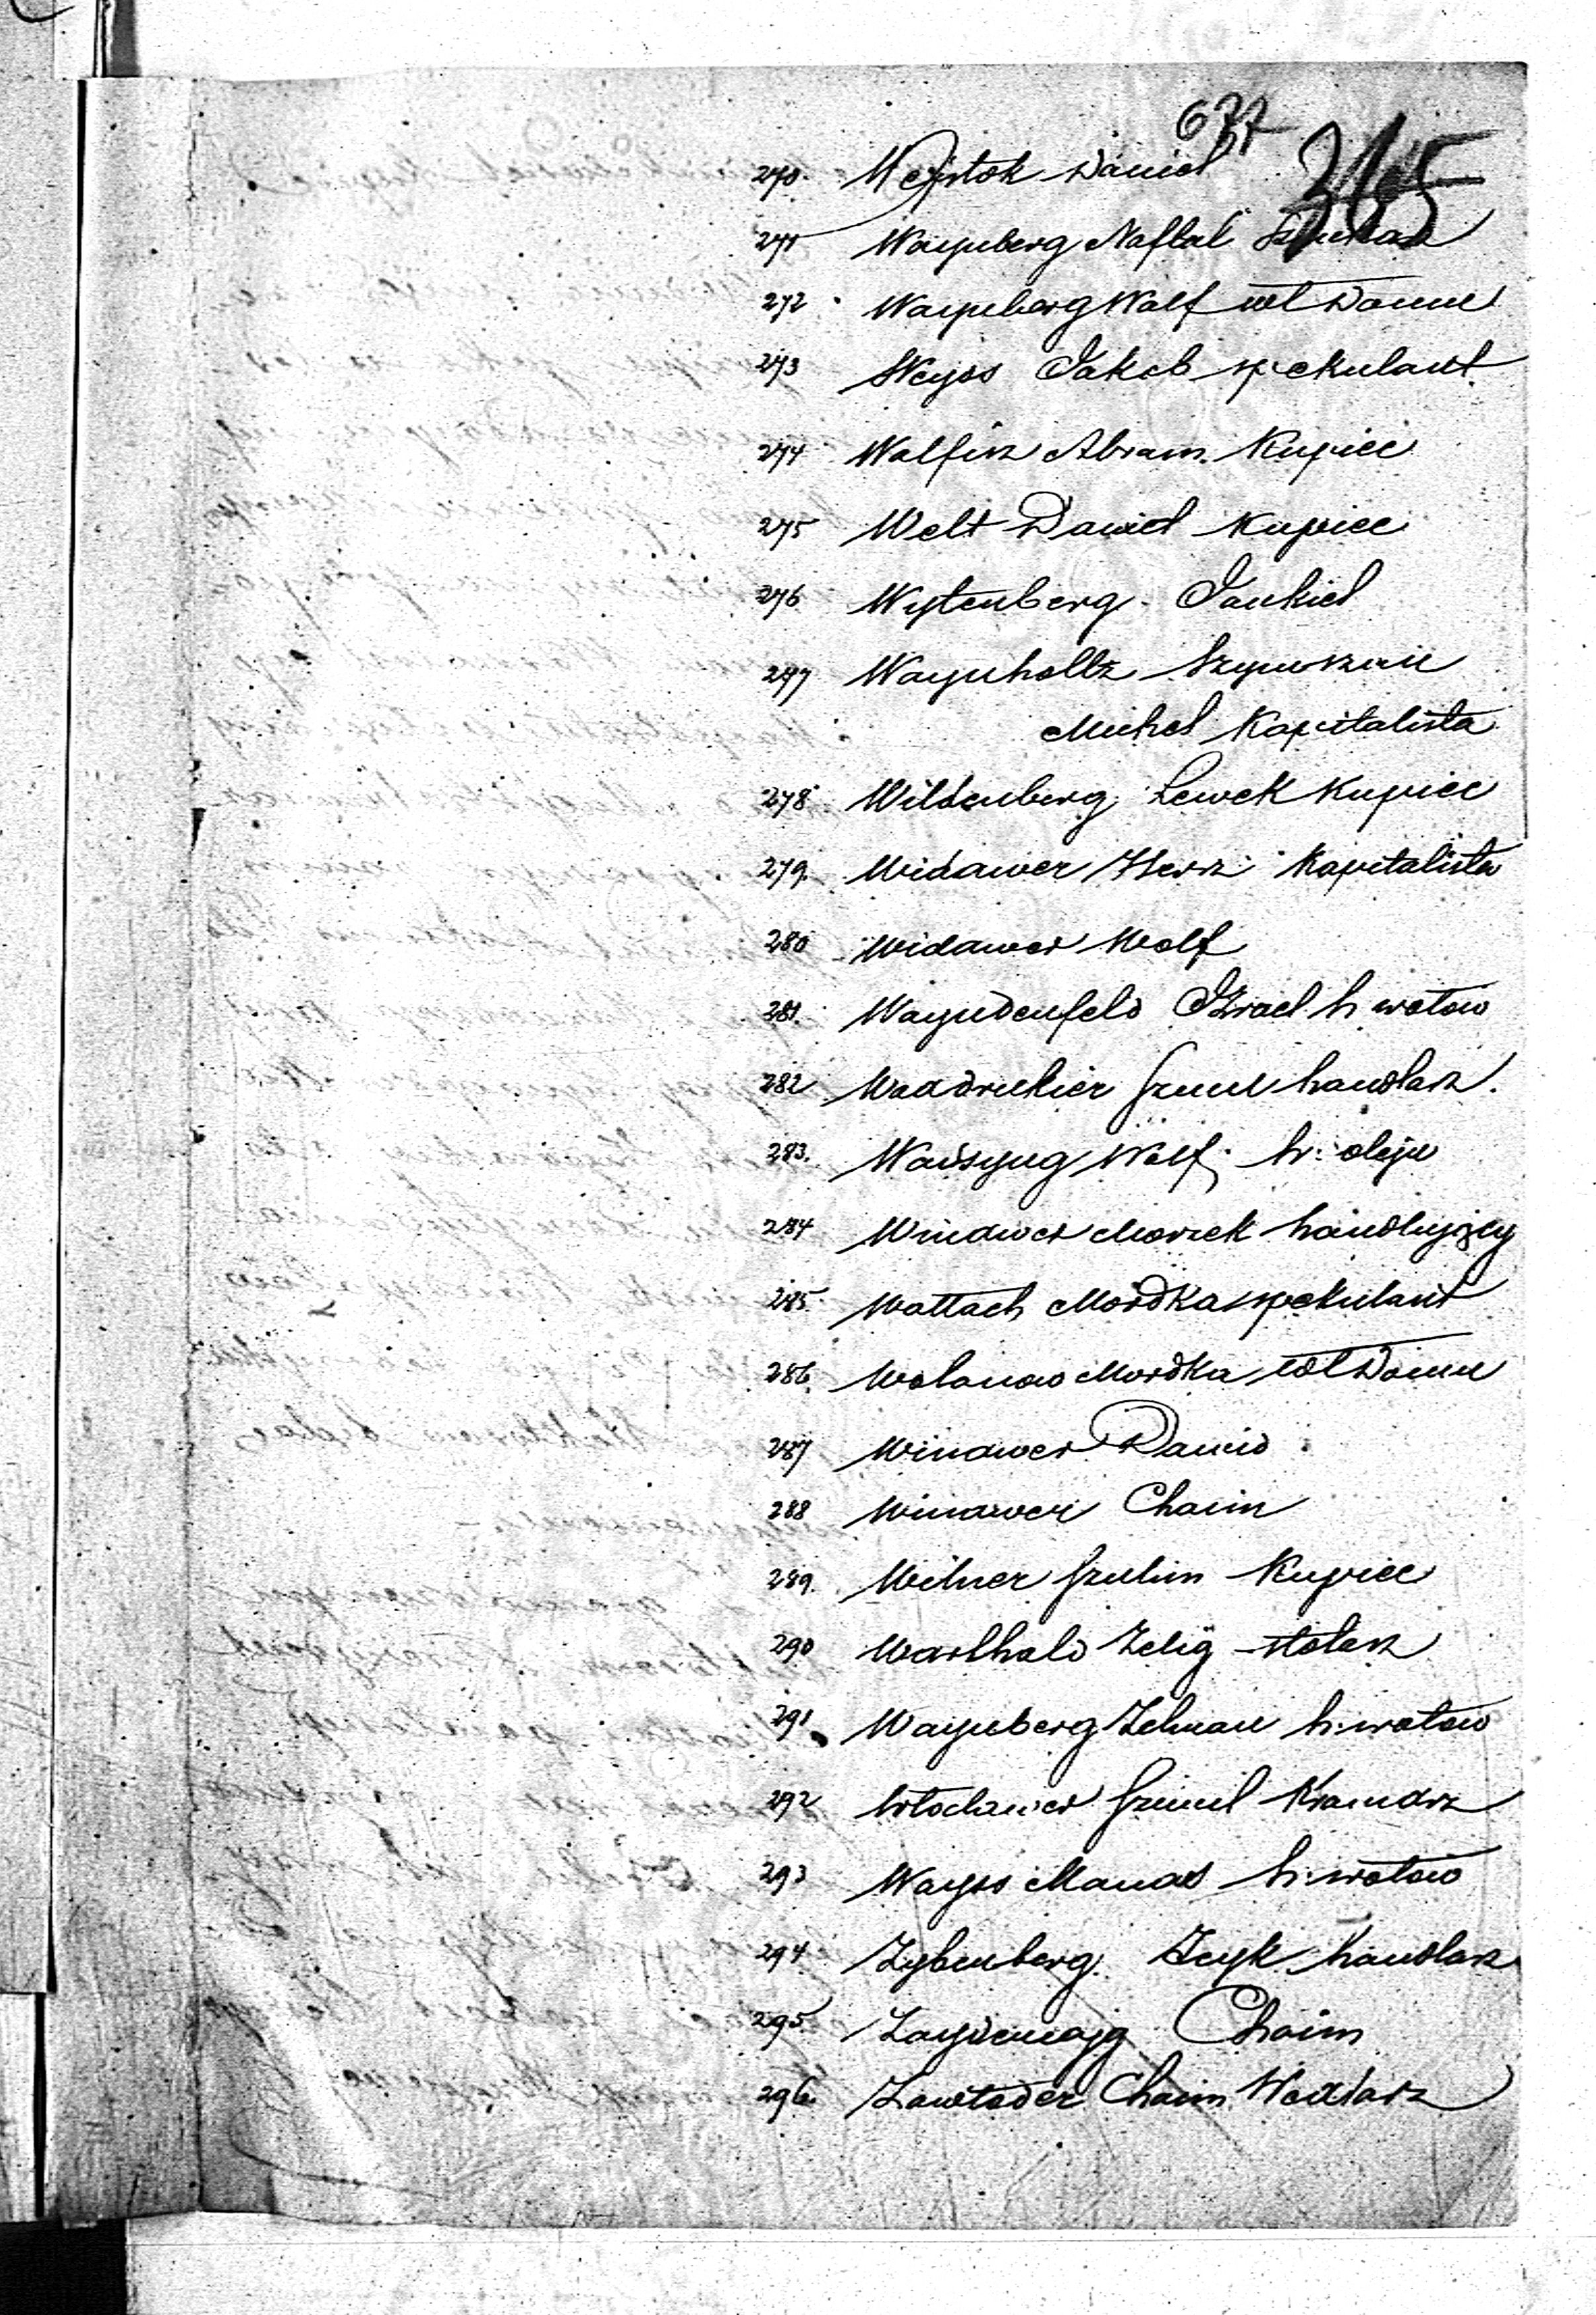 677
315
270. Wejstok Daniel
271 Waynberg Naftal
272 Waynberg Wolf wł Domu
273 Wejss Jakob spekulant
274 Wolfisz Abram Kupiec
275 Welt Dawid Kupiec
276 Wytenberg Jankiel
277 Waynholtz Szymsznie
Michel Kapitalista
278 Wildenberg Lewek Kupiec
279. Widawer Hersz Kapitalista
280 Widawer Wolf
281. Wayndenfeld Izrael h wołow
282 Waadrukier Szmul handlarz.
283. Wadsyng Wolf h: oleju
284 Winawer Moszek handlujący
285 Wallach Mordka spekulant
286. Wolanow Mordka wł Domu
287 Winawer Dawid
288 Winawer Chaim
289. Wilner Szulim Kupiec
290 Warthald Zelig stolarz
291 Waynberg Zelman h: wołow
292 Włocławer Szmul Kramarz
293 Wayss Manas h: wołow
294 Zylbenberg Icyk handlarz
295 Zaydenwajg Chaim
296 Zawtoder Chaim Woźlarz